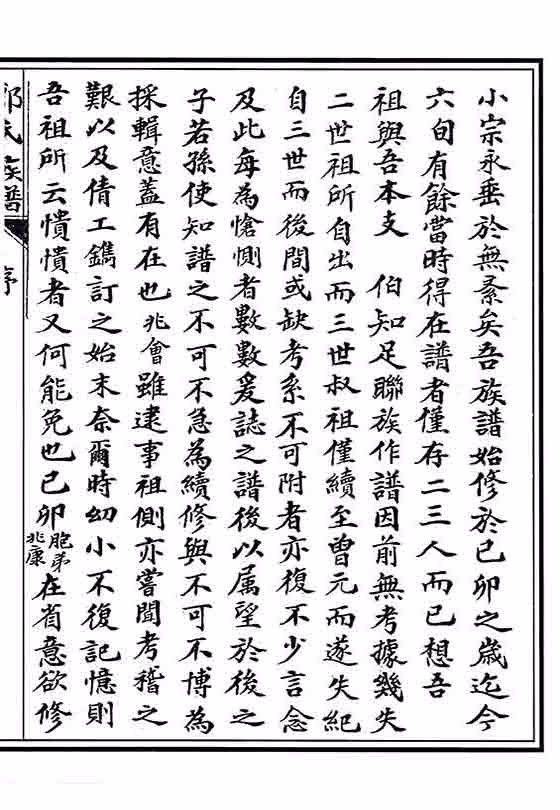 小宗永垂於無紊矣吾族譜始修於己卯之歲迄今
六旬有餘當時得在譜者僅存二三人而已想吾
祖與吾本支　伯知足聯族作譜因前無考據幾失
二世祖所自出而三世叔祖僅續至曾元而遂失紀
自三世而後間或缺考系不可附者亦復不少言念
及此每為愴惻者數數爰誌之譜後以属望於後之
子若孫使知譜之不可不急為續修與不可不博為
採輯意蓋有在也兆會雖逮事祖側亦嘗聞考稽之
艱以及倩工鐫訂之始末奈爾時幼小不復記憶則
吾祖所云憒憒者又何能免也已卯胞弟兆康在省意欲修
氏族譜
序